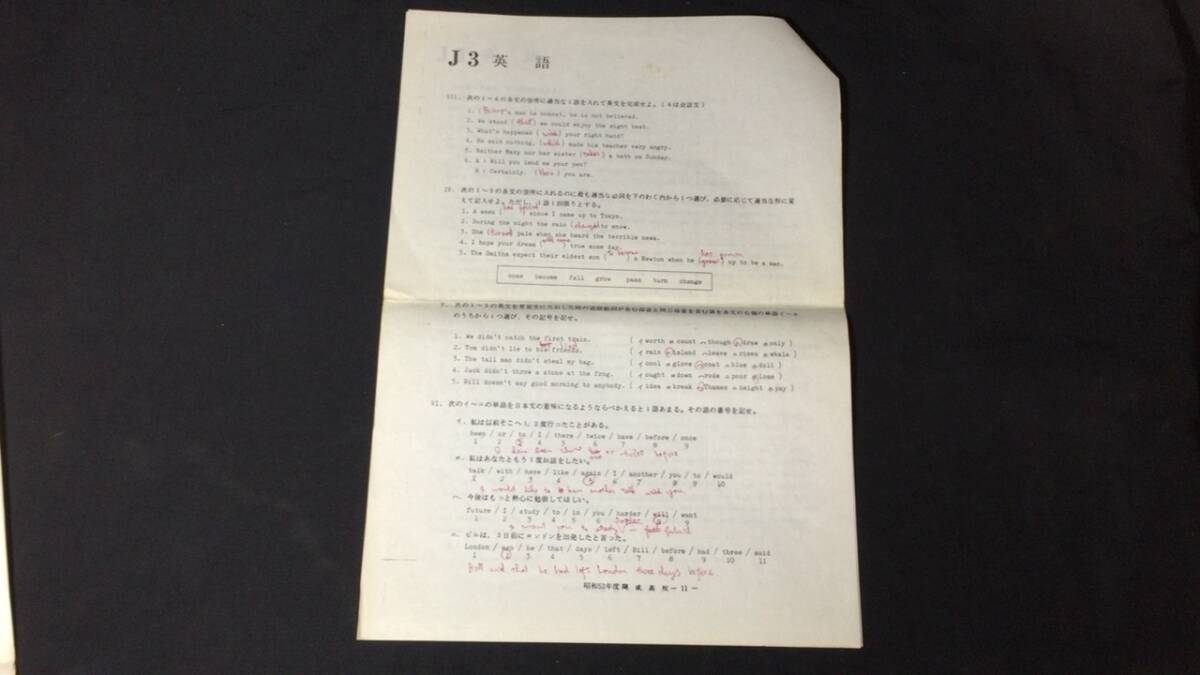 J3 英語
III. 次の1〜6の各文の空所に適当な1語を入れて英文を完成せよ。(6は会話文)
1. ( )'s man is honest, he is not believed.
2. We stand (that) we could enjoy the sight best.
3. What's happened (with) your right hand?
4. He said nothing, (which) made his teacher very angry.
5. Neither Mary nor her sister (takes) a bath on Sunday.
6. A : Will you lend me your pen?
B : Certainly. (Here) you are.
IV. 次の1〜5の各文の空所に入れるのに最も適当な動詞を下のわく内から1つ選び、必要に応じて適当な形に変
えて記入せよ。ただし、1語1回限りとする。
1. A week (has passed) since I came up to Tokyo.
2. During the night the rain (changed) to snow.
3. She (turned) pale when she heard the terrible news.
4. I hope your dream (will come) true some day.
5. The Smiths expect their eldest son (to become) a Newton when he (grows) up to be a man.
has grown
come become fall grow pass turn change
のうちから1つ選び、その記号を記せ。
1. We didn't catch the first train. (イ worth ロ count ハ though ニ draw ホ only )
2. Tom didn't lie to his friends. (イ rain ロ island ハ leave ニ risen ホ whale )
3. The tall man didn't steal my bag. (イ cool ロ glove ハ coat ニ blue ホ doll )
4. Jack didn't throw a stone at the frog. (イ ought ロ down ハ rode ニ poor ホ lose )
5. Bill doesn't say good morning to anybody. (イ idea ロ break ハ Thames ニ height ホ pay )
VI. 次のイ〜ニの単語を日本文の意味になるようならべかえると1語あまる。その語の番号を記せ。
イ. 私は以前そこへ1, 2度行ったことがある。
been / or / to / I / there / twice / have / before / once
1 2 3 4 5 6 7 8 9
I have been there or twice before
once
ロ. 私はあなたともう1度お話をしたい。
talk / with / have / like / again / I / another / you / to / would
1 2 3 4 5 6 7 8 9 10
I would like to have another talk with you
ハ. 今後はもっと熱心に勉強してほしい。
future / I / study / to / in / you / harder / will / want
1 2 3 4 5 6 7 8 9
I want you to study
ニ. ビルは、3日前にロンドンを出発したと言った。
London / ago / he / that / days / left / Bill / before / had / three / said
1 2 3 4 5 6 7 8 9 10 11
Bill said that he had left London three days before
昭和52年度 開 成 高 校 − 11 −